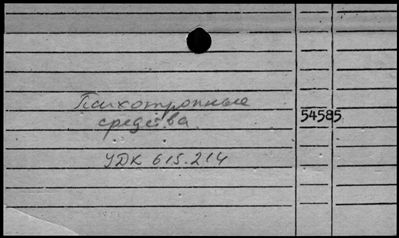 Психотропные
54585
средства
УДК 615.214